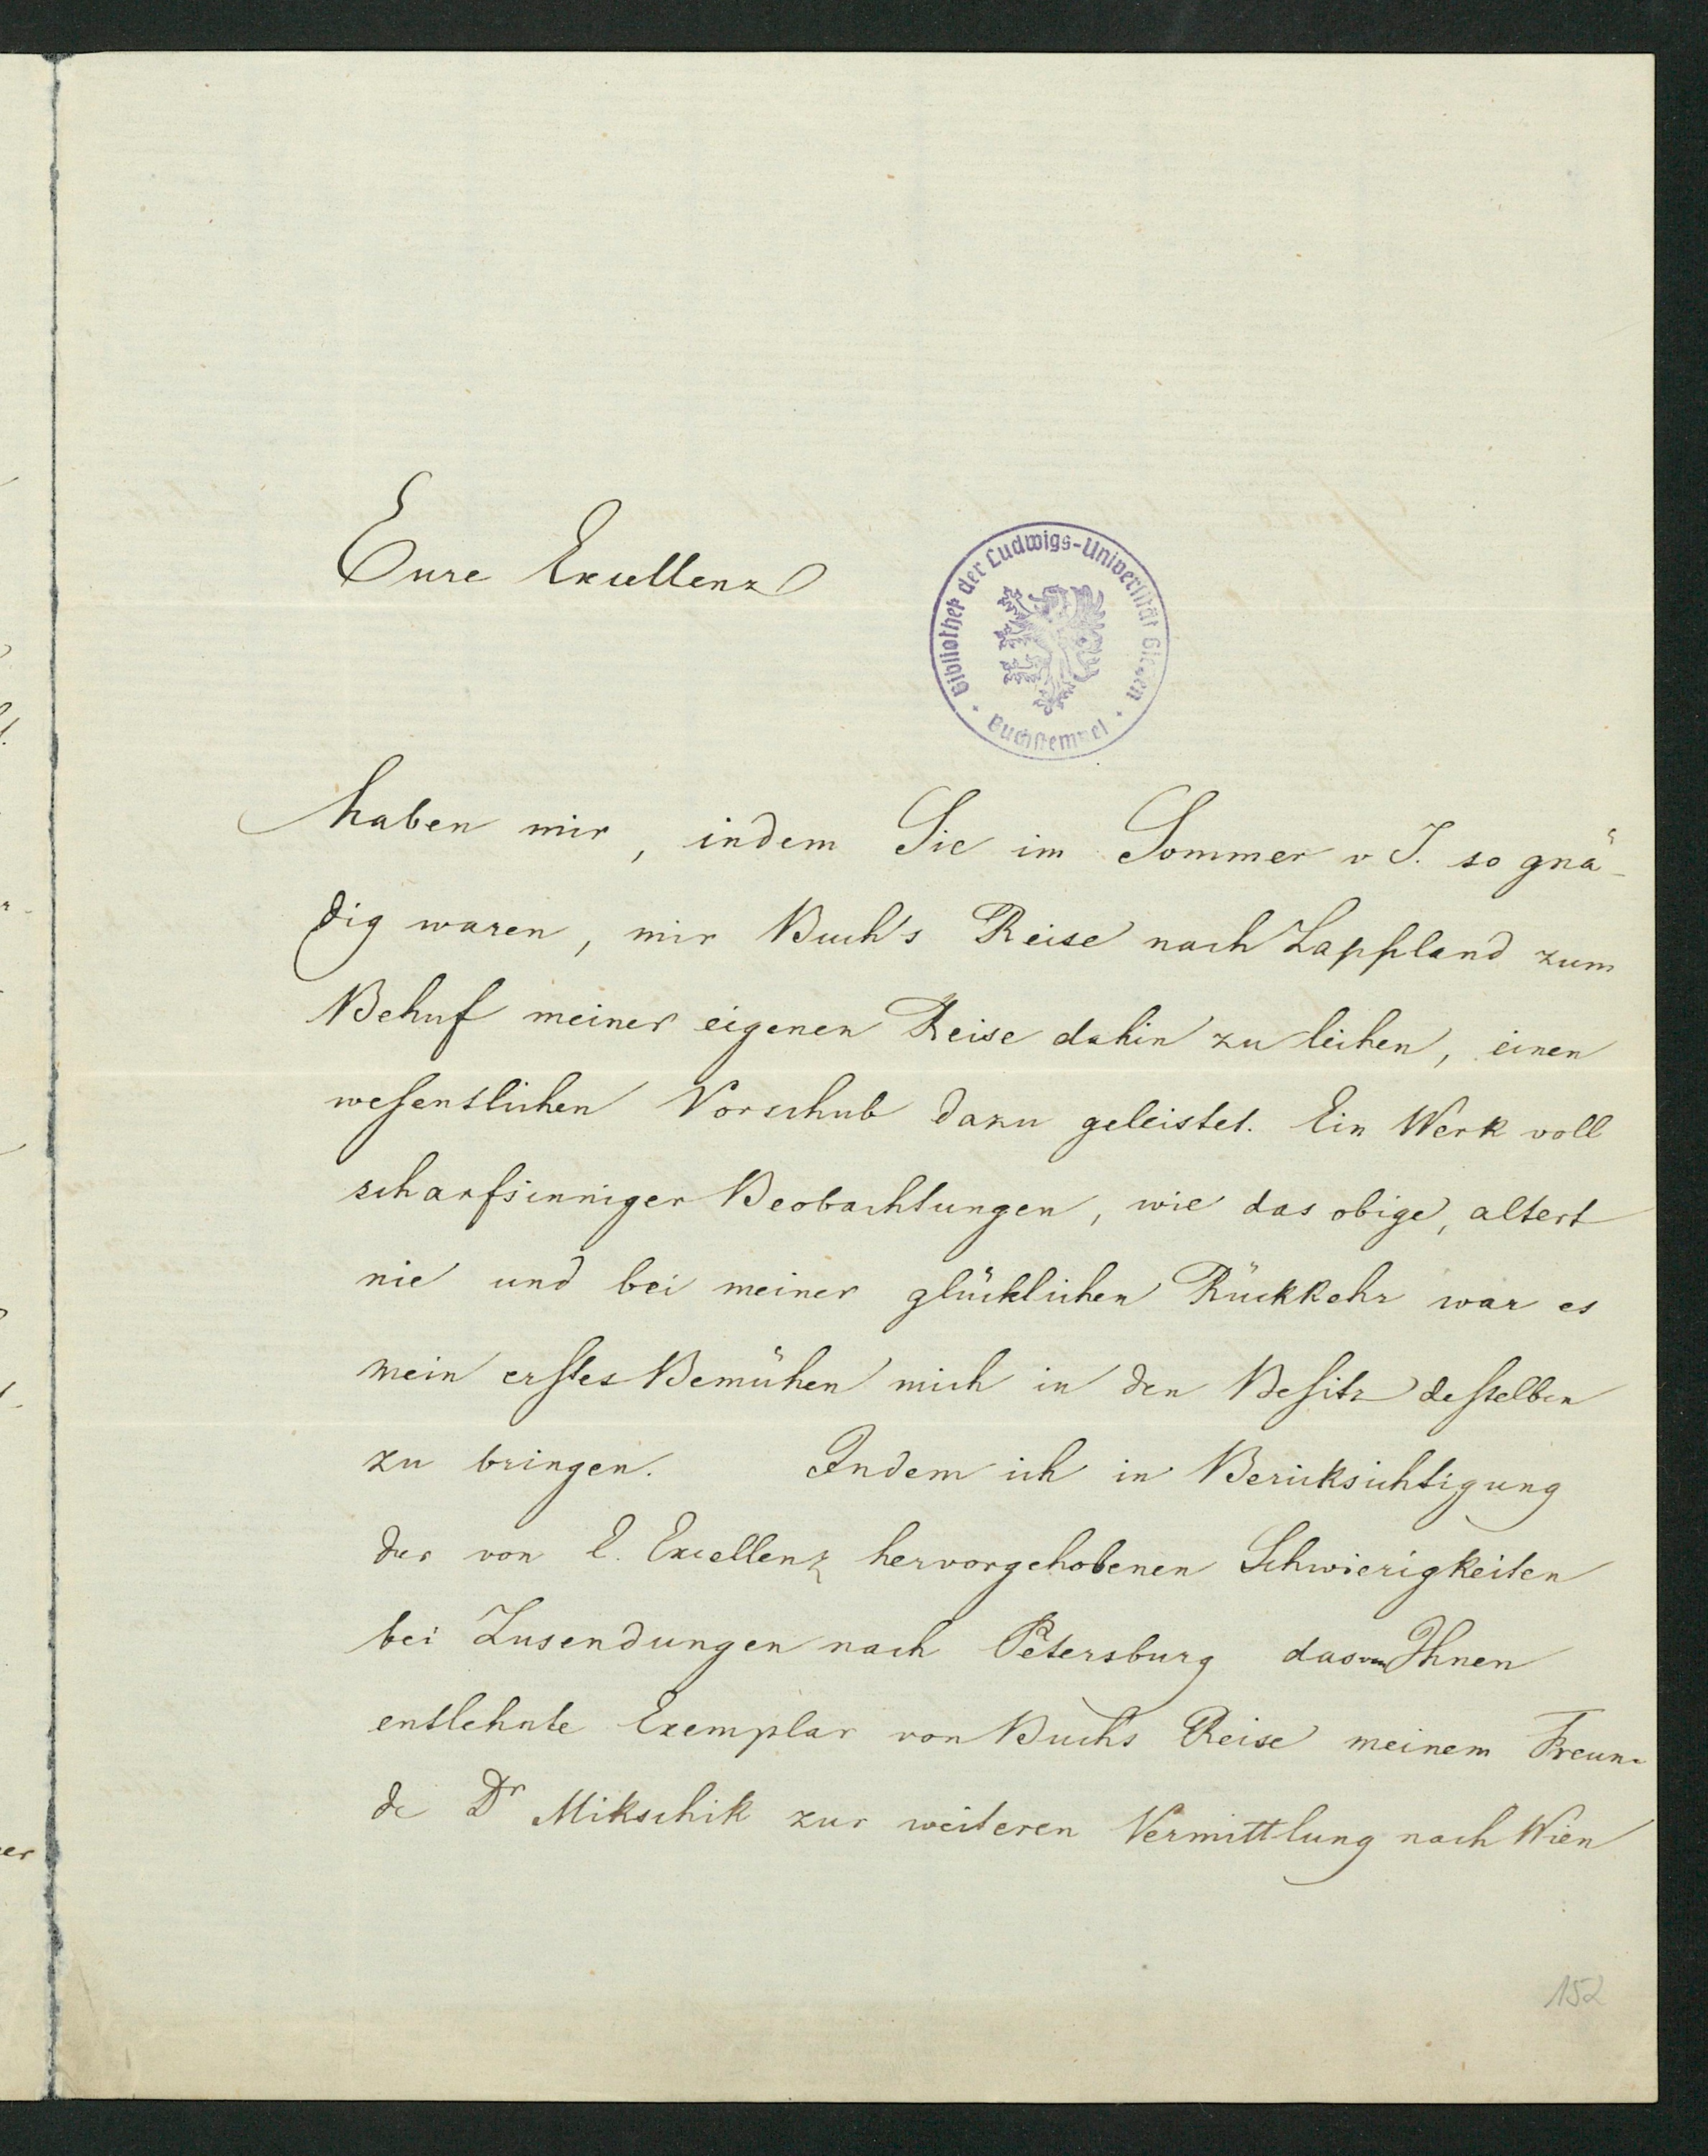 Eure Excellenz
Bibliothek der Ludwigs-Universität Giessen
Buchstempel
haben mir, indem Sie im Sommer v J. so gnä-
dig waren, mir Buch's Reise nach Lappland zum
Behuf meiner eigenen Reise dahin zu leihen, einen
wesentlichen Vorschub dazu geleistet. Ein Werk voll
scharfsinniger Beobachtungen, wie das obige, altert
nie und bei meiner glücklichen Rückkehr war es
mein erstes Bemühen mich in den Besitz desselben
zu bringen. Indem ich in Berücksichtigung
der von E. Excellenz hervorgehobenen Schwierigkeiten
bei Zusendungen nach Petersburg das von Ihnen
entlehnte Exemplar von Buch's Reise meinem Freun-
de Dr Mikschik zur weiteren Vermittlung nach Wien
152
er